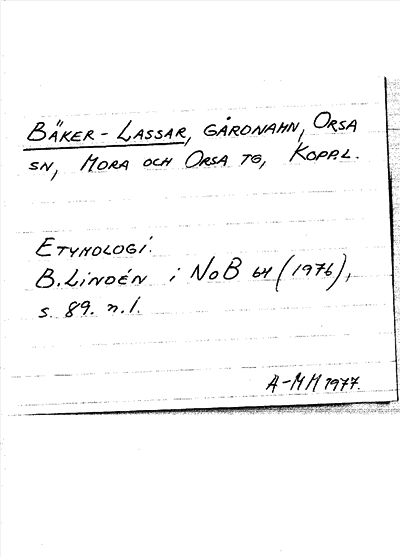 BÄKER-LASSAR, GÅRDNAMN, ORSA
SN, MORA OCH ORSA TG, KOPP.L.
ETYMOLOGI:
B. LINDÉN i NoB 64 (1976),
s. 89. n. 1.
A-MM 1977.